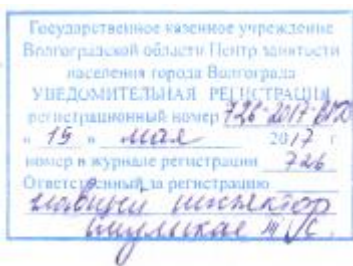 Государственное казенное учреждение
Волгоградской области Центр занятости
населения города Волгограда
УВЕДОМИТЕЛЬНАЯ РЕГИСТРАЦИЯ
регистрационный номер 726-2017-ВГД
" 19 " мая 2017 г
номер в журнале регистрации 726
Ответственный за регистрацию
главный инспектор